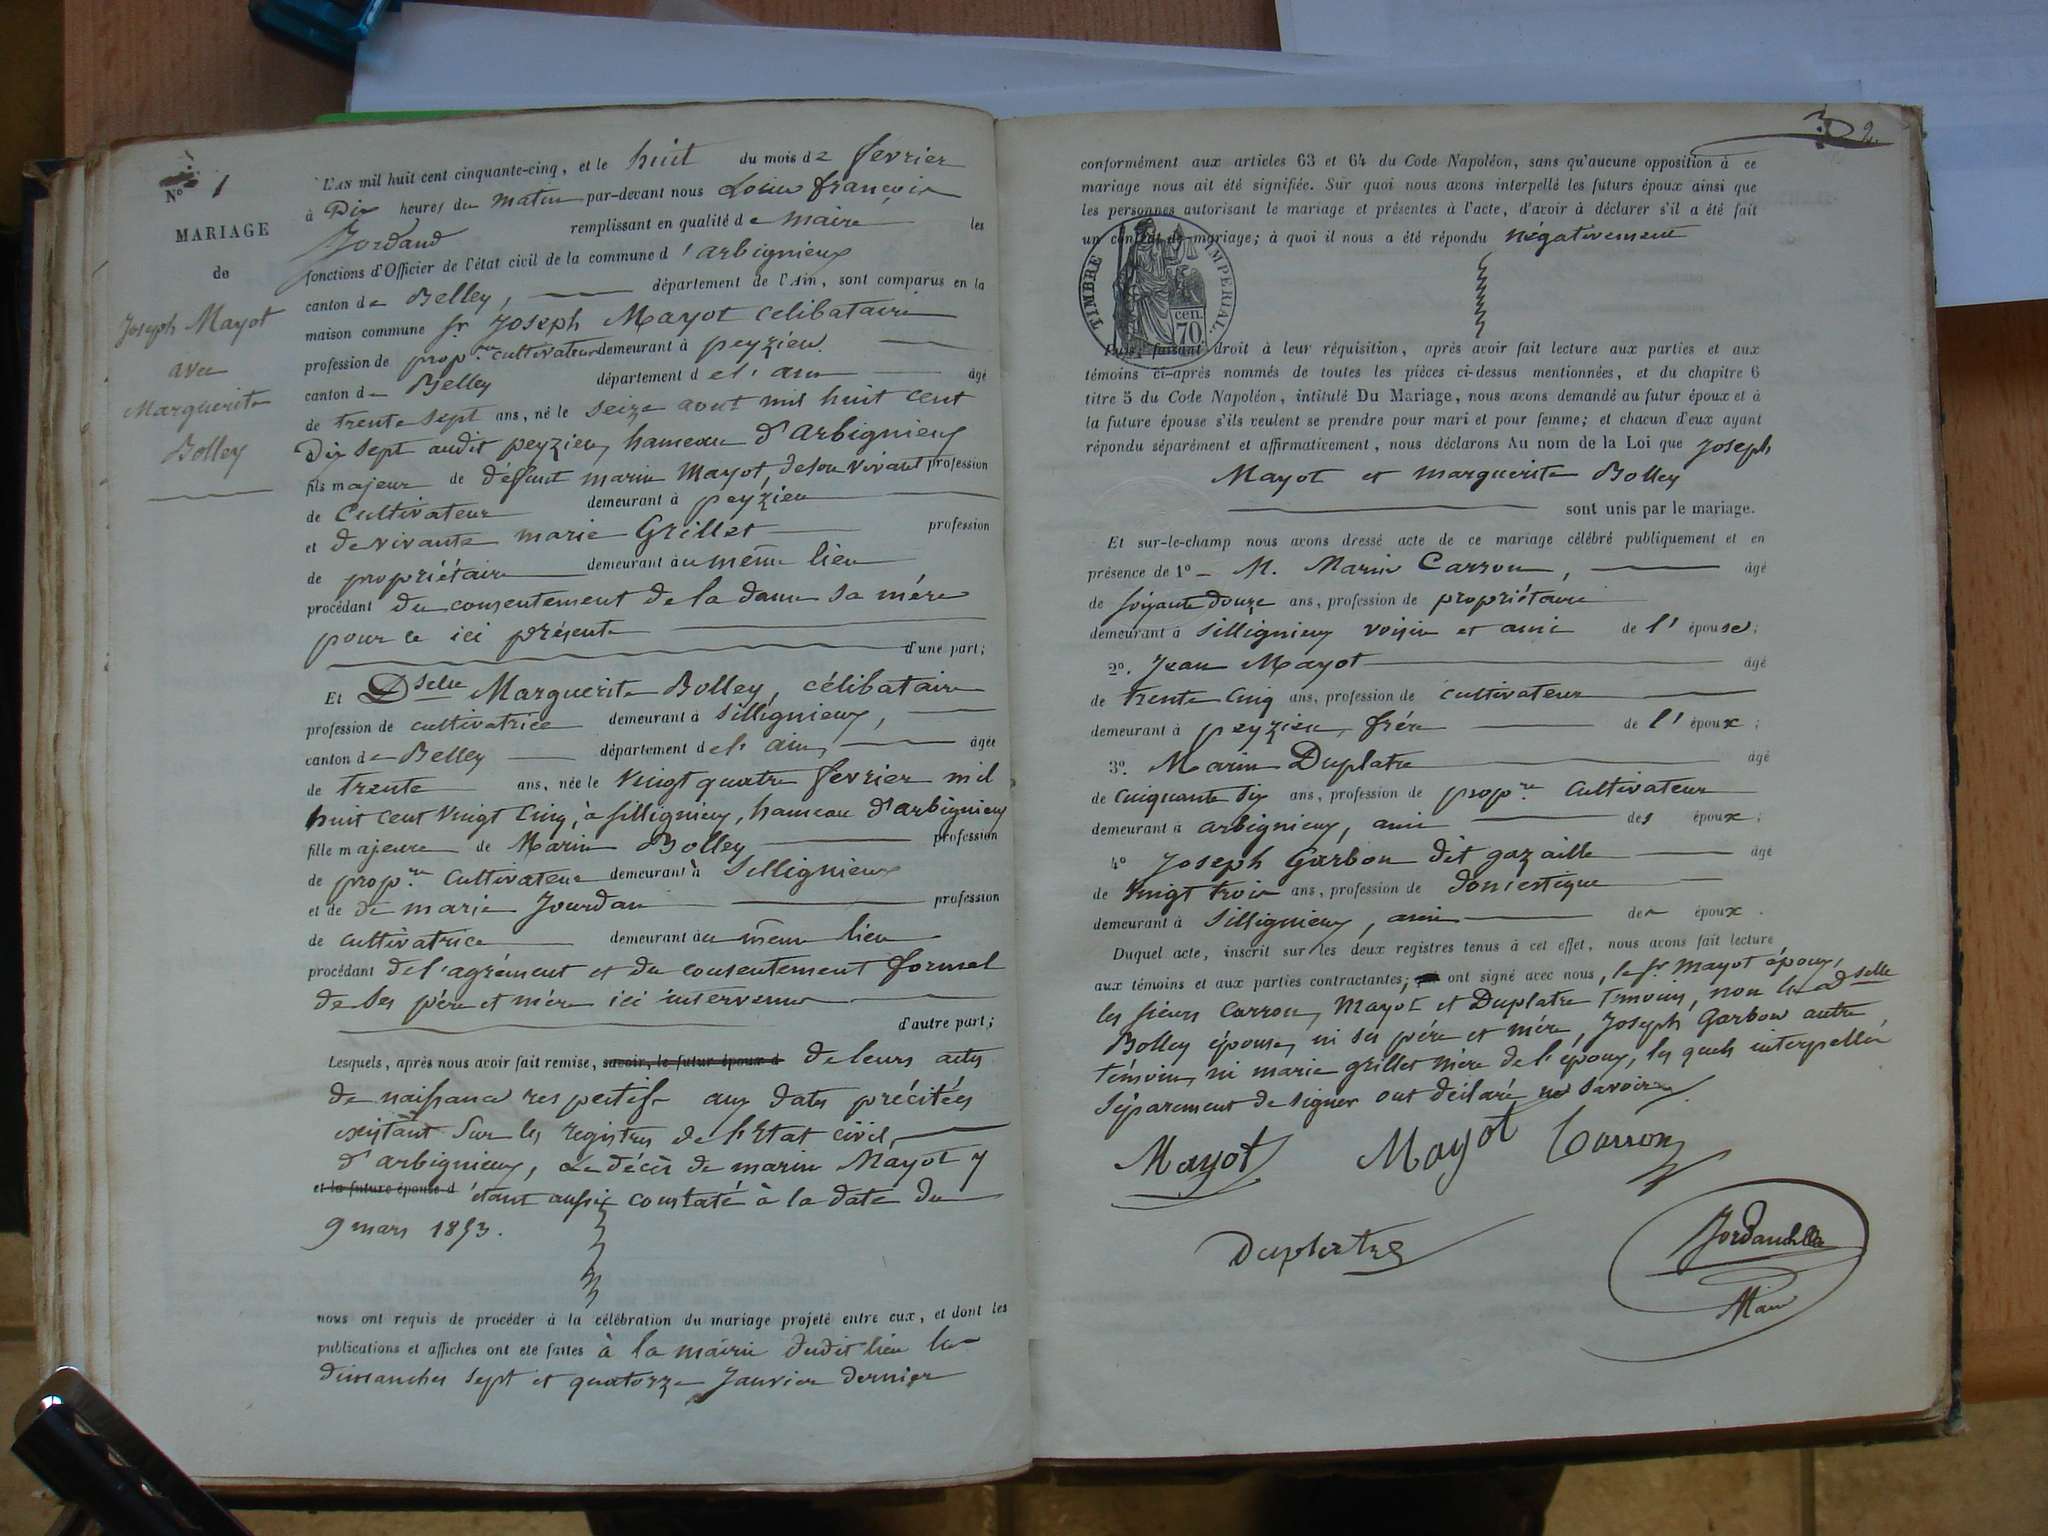 N° 1
MARIAGE
de
Joseph Mayot
avec
Marguerite
Bolley
L'AN mil huit cent cinquante-cinq, et le huit du mois de fevrier
à Dix heures du matin par-devant nous Louis françois
Jordand remplissant en qualité de maire les
fonctions d'Officier de l'état civil de la commune d'arbignieux
canton de Belley, département de l'Ain, sont comparus en la
maison commune sr Joseph Mayot celibataire
profession de propre cultivateur demeurant à peyzieu
canton de Belley département de l'ain âgé
de trente sept ans, né le seize aout mil huit cent
Dix sept audit peyzieu, hameau d'arbignieux
fils majeur de défunt marin Mayot, de son vivant profession
de Cultivateur demeurant à peyzieu
et de vivante marie Grillet profession
de propriétaire demeurant au même lieu
procédant du consentement de la dame sa mère
pour ce ici présente
d'une part;
Et Dselle Marguerite Bolley, célibataire
profession de cultivatrice demeurant à Sillignieux,
canton de Belley département de l'ain, âgée
de trente ans, née le vingt quatre fevrier mil
huit cent vingt cinq, à sillignieux, hameau d'arbignieux
fille majeure de Marin Bolley profession
de propre Cultivateur demeurant à Sillignieux
et de de marie Jourdan profession
de cultivatrice demeurant au même lieu
procédant de l'agrément et du consentement formel
de ses père et mère ici intervenus
d'autre part;
Lesquels, après nous avoir fait remise, savoir, le futur époux d de leurs actes
de naissance respectifs aux dates précitées
existant sur les registres de l'Etat civil,
d'arbignieux, Le décès de marin Mayot y
et la future épouse d étant aussi constaté à la date du
9 mars 1853.
nous ont requis de procéder à la célébration du mariage projeté entre eux, et dont les
publications et affiches ont été faites à la mairie dudit lieu les
dimanches sept et quatorze Janvier dernier
2.
conformément aux articles 63 et 64 du Code Napoléon, sans qu'aucune opposition à ce
mariage nous ait été signifiée. Sur quoi nous avons interpellé les futurs époux ainsi que
les personnes autorisant le mariage et présentes à l'acte, d'avoir à déclarer s'il a été fait
un contrat de mariage; à quoi il nous a été répondu négativement
TIMBRE IMPERIAL.
cen.
70.
Puis, faisant droit à leur réquisition, après avoir fait lecture aux parties et aux
témoins ci-après nommés de toutes les pièces ci-dessus mentionnées, et du chapitre 6
titre 5 du Code Napoléon, intitulé Du Mariage, nous avons demandé au futur époux et à
la future épouse s'ils veulent se prendre pour mari et pour femme; et chacun d'eux ayant
répondu séparément et affirmativement, nous déclarons Au nom de la Loi que Joseph
Mayot et marguerite Bolley
sont unis par le mariage.
Et sur-le-champ nous avons dressé acte de ce mariage célébré publiquement et en
présence de 1° M. Marin Carron, âgé
de soixante douze ans, profession de propriétaire
demeurant à Sillignieux voisin et ami de l'épouse;
2°. Jean Mayot âgé
de trente cinq ans, profession de cultivateur
demeurant à peyzieu, frère de l'époux;
3°. Marin Duplatre âgé
de Cinquante six ans, profession de propre Cultivateur
demeurant à arbignieux, ami des époux;
4° Joseph Garbou dit gazaille âgé
de vingt trois ans, profession de domestique
demeurant à Sillignieux, ami des époux.
Duquel acte, inscrit sur les deux registres tenus à cet effet, nous avons fait lecture
aux témoins et aux parties contractantes; ont signé avec nous, le sr Mayot époux,
les sieurs Carron, Mayot et Duplatre témoins, non la Dselle
Bolley épouse, ni ses père et mère, Joseph Garbou autre
témoin, ni marie grillet mère de l'époux, les quels interpellés
séparement de signer ont déclaré ne savoir
Mayot Mayot Carron
Duplatre
Maire